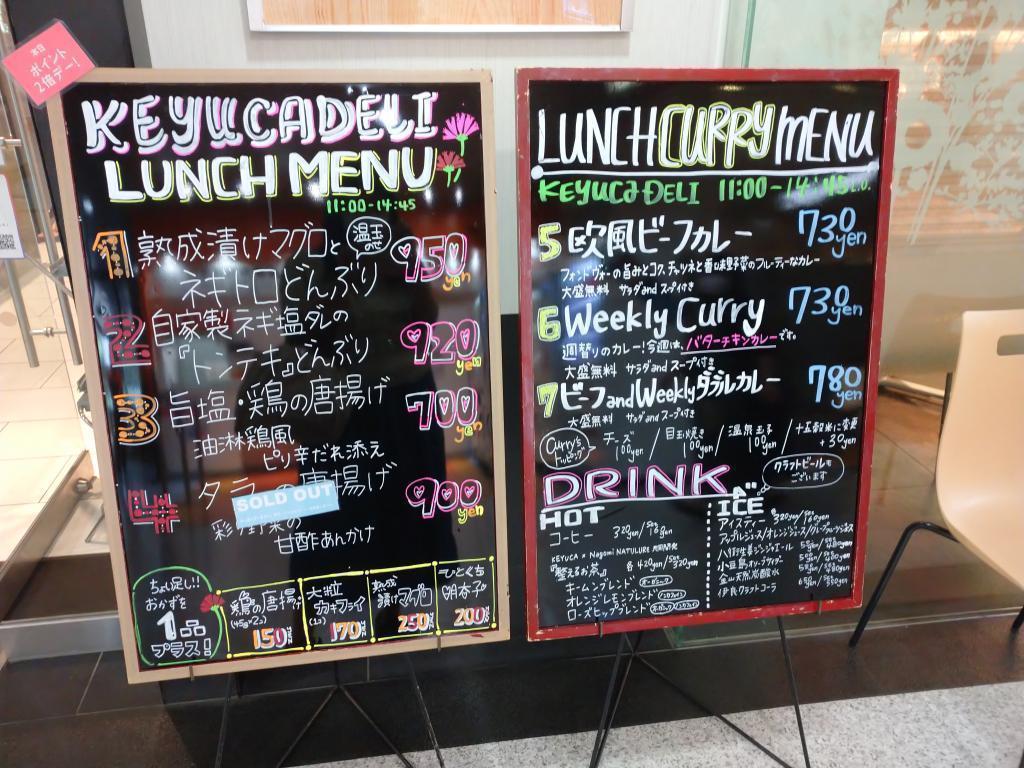 本日
ポイント
2倍デー!
KEYUCADELI
LUNCH MENU
11:00-14:45
1 熟成漬けマグロと 温玉のせ
ネギトロどんぶり 950yen
2 自家製ネギ塩ダレの
『トンテキ』どんぶり 920yen
3 旨塩・鶏の唐揚げ 700yen
油淋鶏風
ピリ辛だれ添え
4 タラの唐揚げ 900yen
SOLD OUT
彩り野菜の
甘酢あんかけ
ちょい足し!!
おかずを
1品
プラス!
鶏の唐揚げ
(45g×2コ)
150
大粒
カキフライ
(1コ)
170
漬けマグロ
250
ひとくち
明太子
200
LUNCH CURRY MENU
KEYUCA DELI 11:00-14:45 L.O.
5 欧風ビーフカレー 730yen
フォンドヴォーの旨みとコク、チャツネと香味野菜のフルーティーなカレー
大盛無料 サラダ and スープ付き
6 Weekly Curry 730yen
週替りのカレー!今週は、バターチキンカレーです。
大盛無料 サラダ and スープ付き
7 ビーフ and Weekly ダブルカレー 780yen
大盛無料 サラダ and スープ付き
Curry's トッピング
チーズ 100yen / 目玉焼き 100yen / 温泉玉子 100yen / 十五穀米に変更 +30yen
DRINK
クラフトビールも
ございます
HOT
コーヒー 320yen/
KEYUCA × Nagomi NATULURE
『整えるお茶』 各420yen/
キームンブレンド オーガニック
オレンジレモンブレンド ノンカフェイン
ローズヒップブレンド オーガニック ノンカフェイン
ICE
アイスティー 320yen/
アップルジュース/オレンジジュース/
八街生姜ジンジャエール
小豆島オリーブサイダー
金山天然炭酸水
伊良コーラ